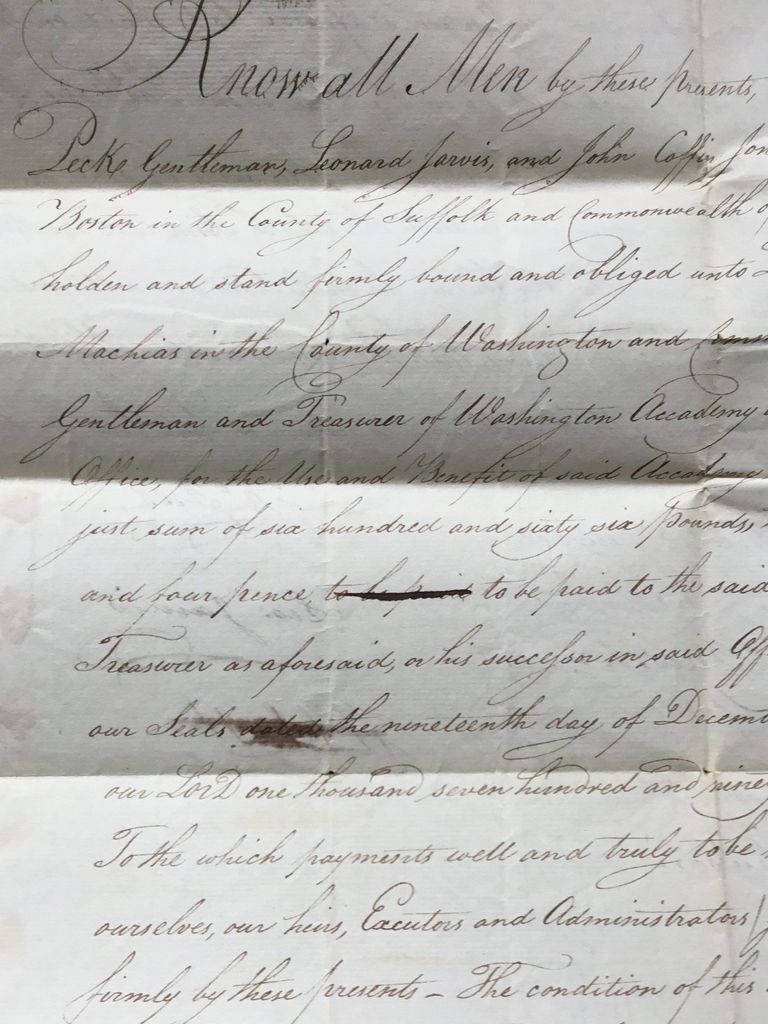 Know all Men by these presents,
Peck Gentleman, Leonard Jarvis, and John Coffin Jon
Boston in the County of Suffolk and Commonwealth o
holden and stand firmly bound and obliged unto
Machias in the County of Washington and
Gentleman and Treasurer of Washington Accademy
Office, for the Use and Benefit of said Accademy
just sum of six hundred and sixty six Pounds,
and four pence to be paid to be paid to the said
Treasurer as aforesaid, or his successor in said Off
our Seals dated the nineteenth day of Decem
our LORD one thousand seven hundred and nine
To the which payments well and truly to be
ourselves, our heirs, Executors and Administrators
firmly by these presents – The condition of this